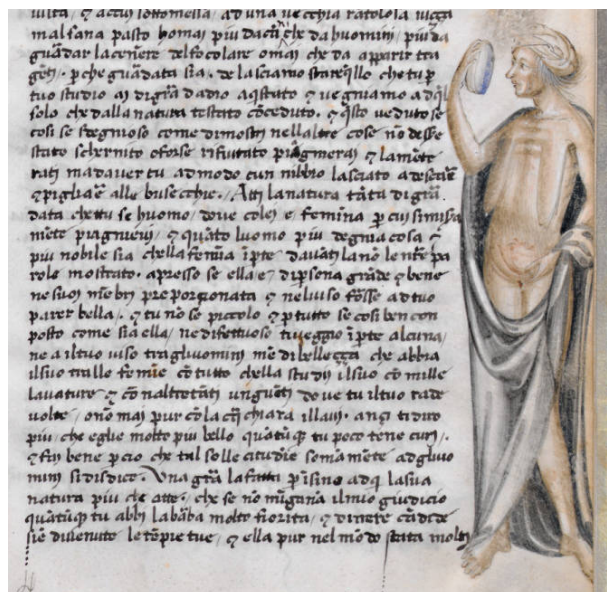 mal sana pasto homai piu dacti che da huomini, piu da
guādar la cenere del focolare omai che da apparir tra
gēti. p che guādata sia. de lasciamo stare qllo che tu p
tuo studio ai di grā dadio aqstato & vegniamo ad ql
solo che dalla natura testato cōceduto. & qsto veduto se
cosi se sdegnioso come dimostri nellaltre cose nō desse
stato schernito o forse rifiutato piāgnerai & lamēte
rati madaver tu ad modo dun nibbio lasciato adescare
& pigliare alle busecchie. Atti la natura tāta di grā
data che tu se huomo, dove colei e femina p cui si misera
mēte piagnievi, & quāto luomo piu degnia cosa &
piu nobile sia chella femīa ī pte davāti lanō le nrē pa
role mostrato. apresso se ella e di psona grāde & bene
ne suoi mēbri preporzionata & nel viso fosse ad tuo
parer bella. & tu nō se piccolo & p tutto se cosi ben con
posto come sia ella, ne difettuoso ti veggio ī pte alcuna,
ne a il tuo viso tra gluomini mē di bellezza che abbia
il suo tralle femīe cō tutto chella studij il suo cō mille
lavature & cō naltrotāti unguēti dove tu il tuo rade
volte, o nō mai pur cō la cq̄ chiara illavi. anzi ti diro
piu, che eglie molto piu bello quātūq tu poco tene curi,.
& fai bene p cio che tal sollecitudīe somamēte ad gluo
mini si disdice. Una grā la fatta p īsino ad q la sua
natura piu che atte, che se nō mīgana il mio giudicio
quātūq tu abbi la bāba molto fiorita, & di nere cādide
siē divenute le tēpie tue, & ella pur nel mōdo stata molti